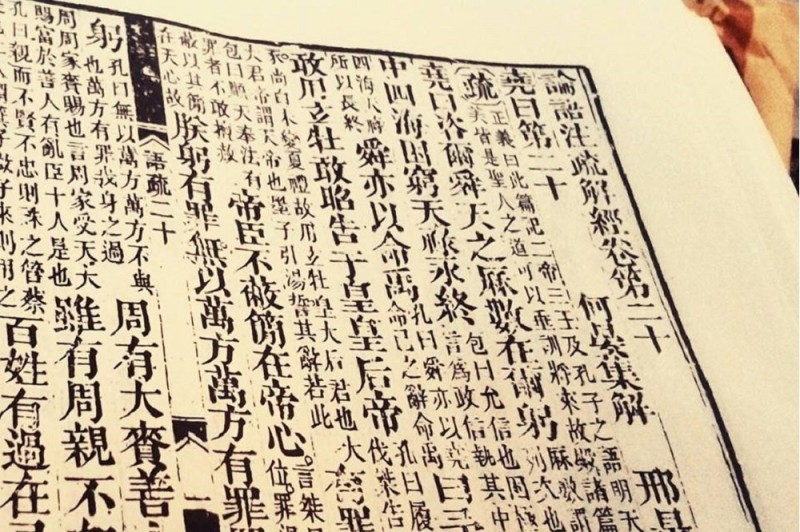 論語注疏解經卷第二十
堯曰第二十 何晏集解 邢昺
疏 正義曰此篇記二帝三王及孔子之語明天
皆是聖人之道可以垂訓將來故殿諸篇
堯曰咨爾舜天之厤數在爾躬 厤數謂
列次也
中四海困窮天祿永終 包曰允信也困極
言爲政信執其中
四海天祿
所以長終 舜亦以命禹 孔曰舜亦以堯
命己之辭命禹 曰予
敢用玄牡敢昭告于皇皇后帝 孔曰履
伐桀告
天尚白未變夏禮故用玄牡皇大后君也大
大君帝謂天帝也墨子引湯誓其辭若此 有罪
包曰順天奉法有
罪者不敢擅赦 帝臣不蔽簡在帝心 言桀
位罪
蔽以其簡
在天心故 朕躬有罪無以萬方萬方有罪
語疏二十
躬 孔曰無以萬方萬方不與
也萬方有罪我身之過 周有大賚善
周周家賚賜也言周家受天大
賜富於善人有亂臣十人是也 雖有周親不
孔曰親而不賢不忠則誅之管蔡
來則用之 百姓有過在